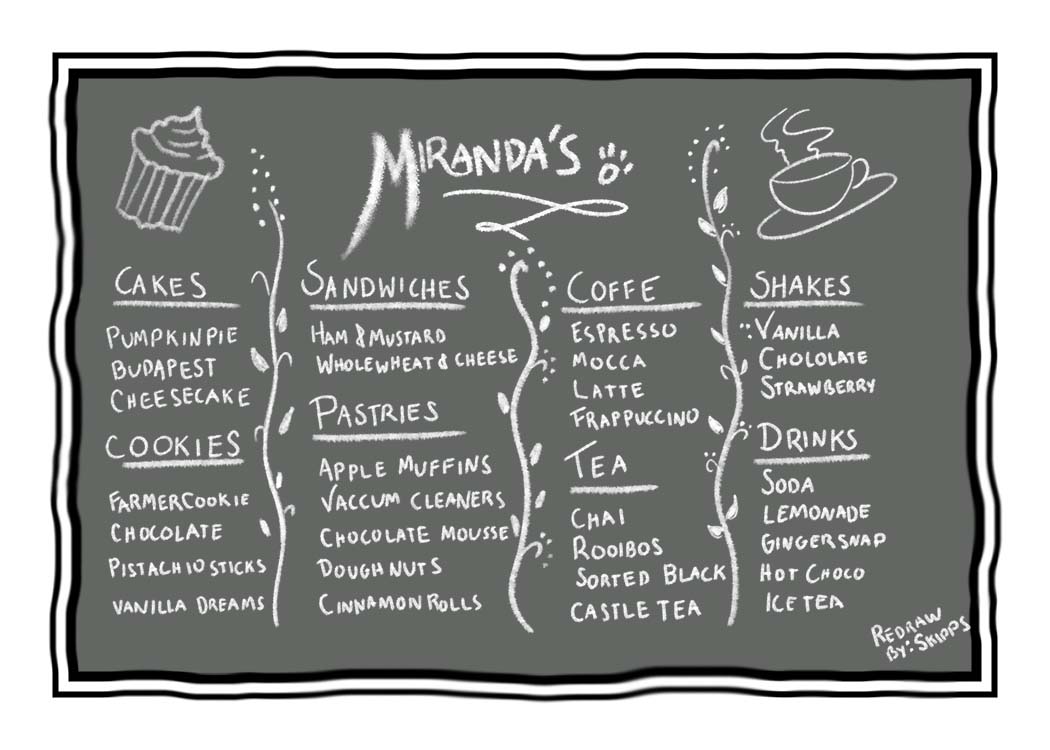 MIRANDA'S
CAKES
PUMPKINPIE
BUDAPEST
CHEESECAKE
COOKIES
FARMERCOOKIE
CHOCOLATE
PISTACHIO STICKS
VANILLA DREAMS
SANDWICHES
HAM & MUSTARD
WHOLEWHEAT & CHEESE
PASTRIES
APPLE MUFFINS
VACCUM CLEANERS
CHOCOLATE MOUSSE
DOUGHNUTS
CINNAMON ROLLS
COFFE
ESPRESSO
MOCCA
LATTE
FRAPPUCCINO
TEA
CHAI
ROOIBOS
SORTED BLACK
CASTLE TEA
SHAKES
VANILLA
CHOLOLATE
STRAWBERRY
DRINKS
SODA
LEMONADE
GINGERSNAP
HOT CHOCO
ICE TEA
REDRAW
BY: SKIPPS